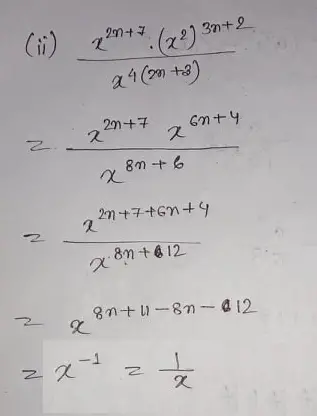 (ii) x^{2n+7} · (x^2)^{3n+2}
x^{4(2n+3)}
= x^{2n+7} x^{6n+4}
x^{8n+6}
= x^{2n+7+6n+4}
x^{8n+12}
= x^{8n+11-8n-12}
= x^{-1} = 1/x